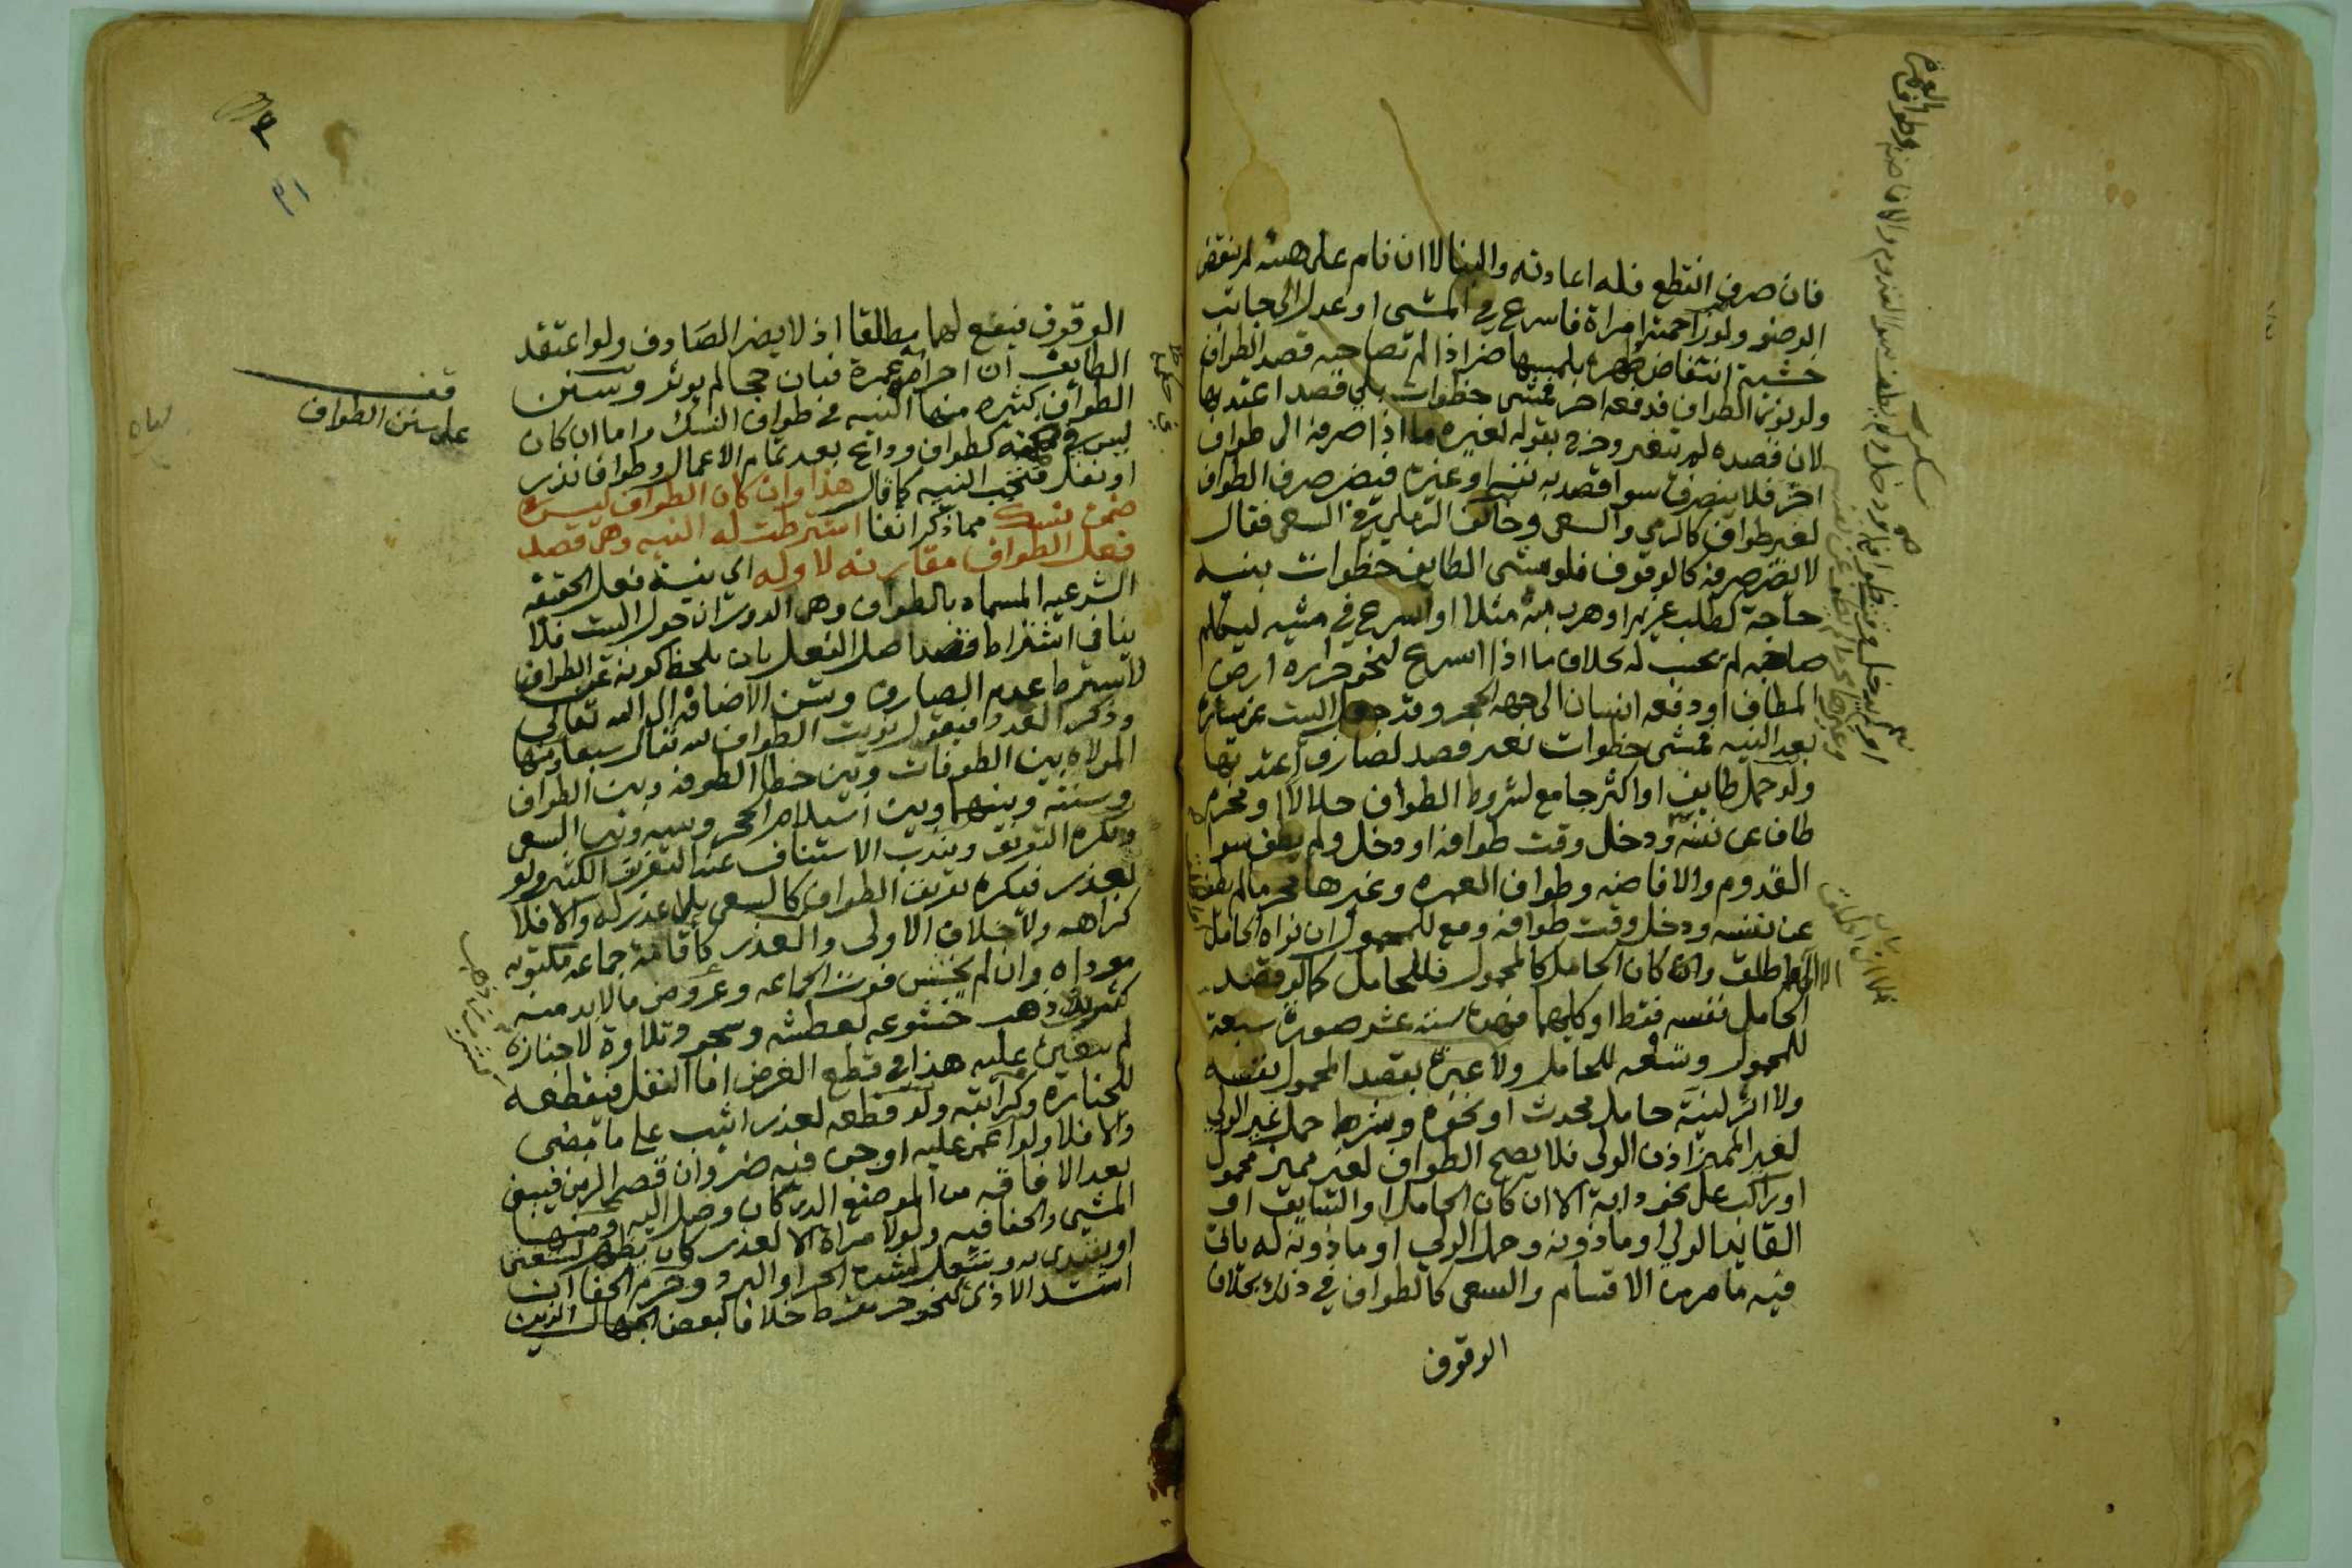 فان صرف انقطع فله اعادته والبنا لا ان نام على هيئة لم ينقض
الوضو ولو زاحمته امراة فاسرع في المشي او عدل الى جانب
خشية انتقاض طهره بلمسها ضر اذا لم تصاحبه قصد الطواف
ولو نوى الطواف فدفعه اخر فمشى خطوات بلا قصد اعتد بها
لان قصده لم يتغير وخرج بقوله لغيره ما اذا صرفه الى طواف
اخر فلا ينصرف سوا قصد به نفسه او غيره فيضر صرف الطواف
لغير طواف كالرمي والسعي وخالف الرملي في السعي فقال
لا يضر صرفه كالوقوف فلو مشى الطايف خطوات بنية
حاجة كطلب غريم او هرب منه مثلا او اسرع في مشيه ليكلم
صاحبه لم تحسب له بخلاف ما اذا اسرع لنحو حرارة ارض
المطاف او دفعه انسان الى جهة الحجر وقد جعل البيت عن يساره
بعد النيه فمشى خطوات بغير قصد لصارف اعتد بها
ولو حمل طايف او اكثر جامع لشروط الطواف حلالا او محرم
طاف عن نفسه ودخل وقت طوافه او دخل ولم يطف سوا
القدوم والافاضه وطواف العمره وغيرها محرما لم يطف
عن نفسه ودخل وقت طوافه وقع للمحمول ان نواه الحامل
او اطلق وان كان الحامل كالمحمول فللحامل كما لو قصد
الحامل نفسه فقط او كليهما فهذه سته عشر صورة سبعة
للمحمول وتسعه للحامل ولا عبرة بقصد المحمول نفسه
ولا اثر لنية حامل محدث او نحوه وشرط حمل غير الولي
لغير المميز اذن الولي فلا يصح الطواف لغير مميز محمول
او راكب على نحو دابة الا ان كان الحامل او السايق او
القايد الولي او ماذونه وحمل الولي او ماذونه له ياتي
فيه ما مر من الاقسام والسعي كالطواف في ذلك بخلاف
الوقوف
الوقوف فيقع لهما مطلقا اذ لا يضر الصارف ولو اعتقد
الطايف ان احرامه عمرة فبان حجا لم يوثر وسنن
الطواف كثيره منها النيه في طواف النسك واما ان كان
ليس في ضمنه كطواف وداع بعد تمام الاعمال وطواف نذر
او نفل فتجب النيه كما قال هذا وان كان الطواف ليس في
ضمن نسك مما ذكر انفا اشترطت له النيه وهي قصد
فعل الطواف مقارنه لاوله اي بنية فعل الحقيقه
الشرعيه المسماه بالطواف وهي الدوران حول البيت فلا
ينافي اشتراط قصد اصل الفعل بان يلحظ كونه عن الطواف
لاشتراط عدم الصارف وسن الاضافة الى الله تعالى
وذكر العدد فيقول نويت الطواف لله تعالى سبعا ومنها
الموالاه بين الطوفات وبين خطا الطوفه وبين الطواف
وسنته وبينهما وبين استلام الحجر وبينه وبين السعي
ويكره التفريق ويندب الاستئناف عند التفريق الكثير ولو
لعذر فيكره تفريق الطواف كالسعي بلا عذر له والا فلا
كراهه ولا خلاف الاولى والعذر كاقامة جماعه مكتوبه
موداه وان لم يخش فوت الجماعه وعروض ما لا بد منه
كشرب ذهب خشوعه بعطشه وسجود تلاوة لا جنازه
لم تتعين عليه هذا في قطع الفرض اما النفل فيقطعه
للجنازة وكراتبة ولو قطعه لعذر اثيب على ما مضى
والا فلا ولو اغمي عليه او جن فيه ضر وان قصر الزمن فيبني
بعد الافاقه من الموضع الذي كان وصل اليه ومنها
المشي والحفا فيه ولو لامراة الا لعذر كان يظهر ليستفتى
او يقتدى به وينتعل لشدة الحر او البرد وحرم الحفا ان
اشتد الاذى كنحو حر مفرط خلافا لبعض الجهال الذين
قف
على سنن الطواف